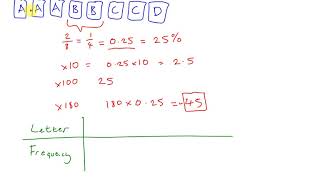 A A A B B C C D
2/8 = 1/4 = 0.25 = 25%
×10 = 0.25 × 10 = 2.5
×100 25
×180 180 × 0.25 = 45
Letter
Frequency